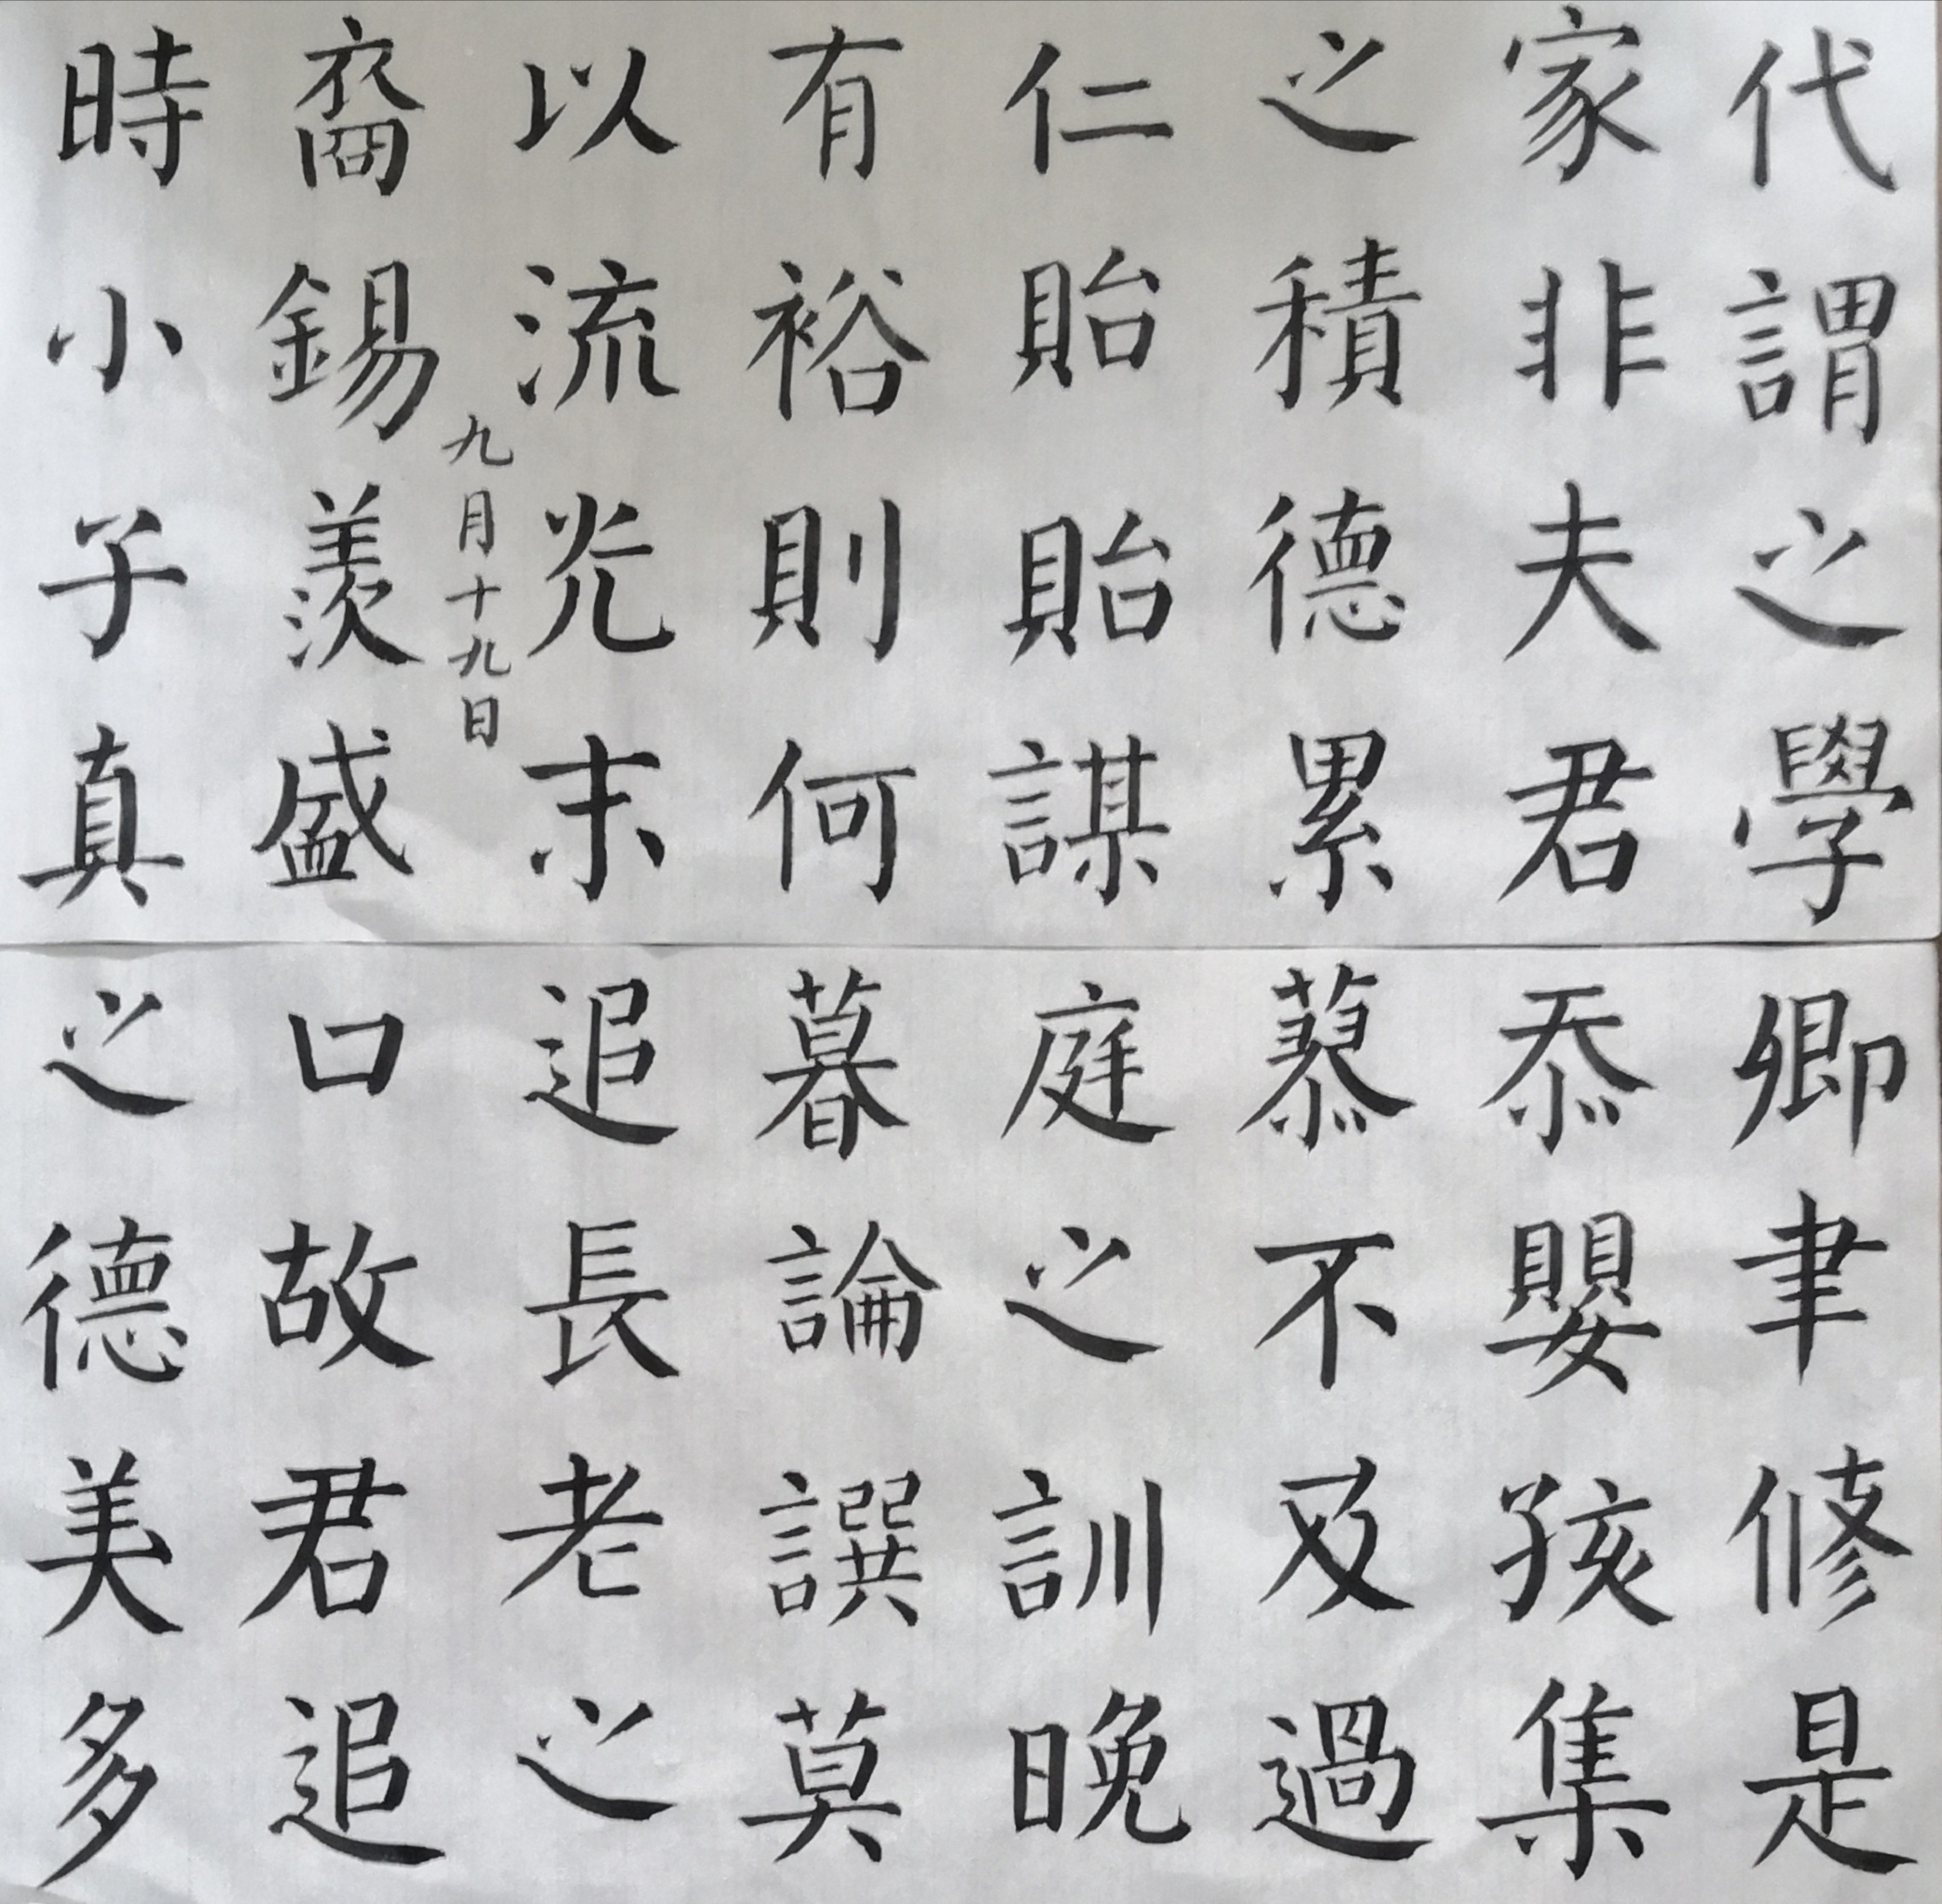 代謂之學
家非夫君
之積德累
仁貽貽謀
有裕則何
以流光末
裔錫羨盛
時小子真
九月十九日
卿聿修是
忝嬰孩集
蓼不及過
庭之訓晚
暮論譔莫
追長老之
口故君追
之德美多